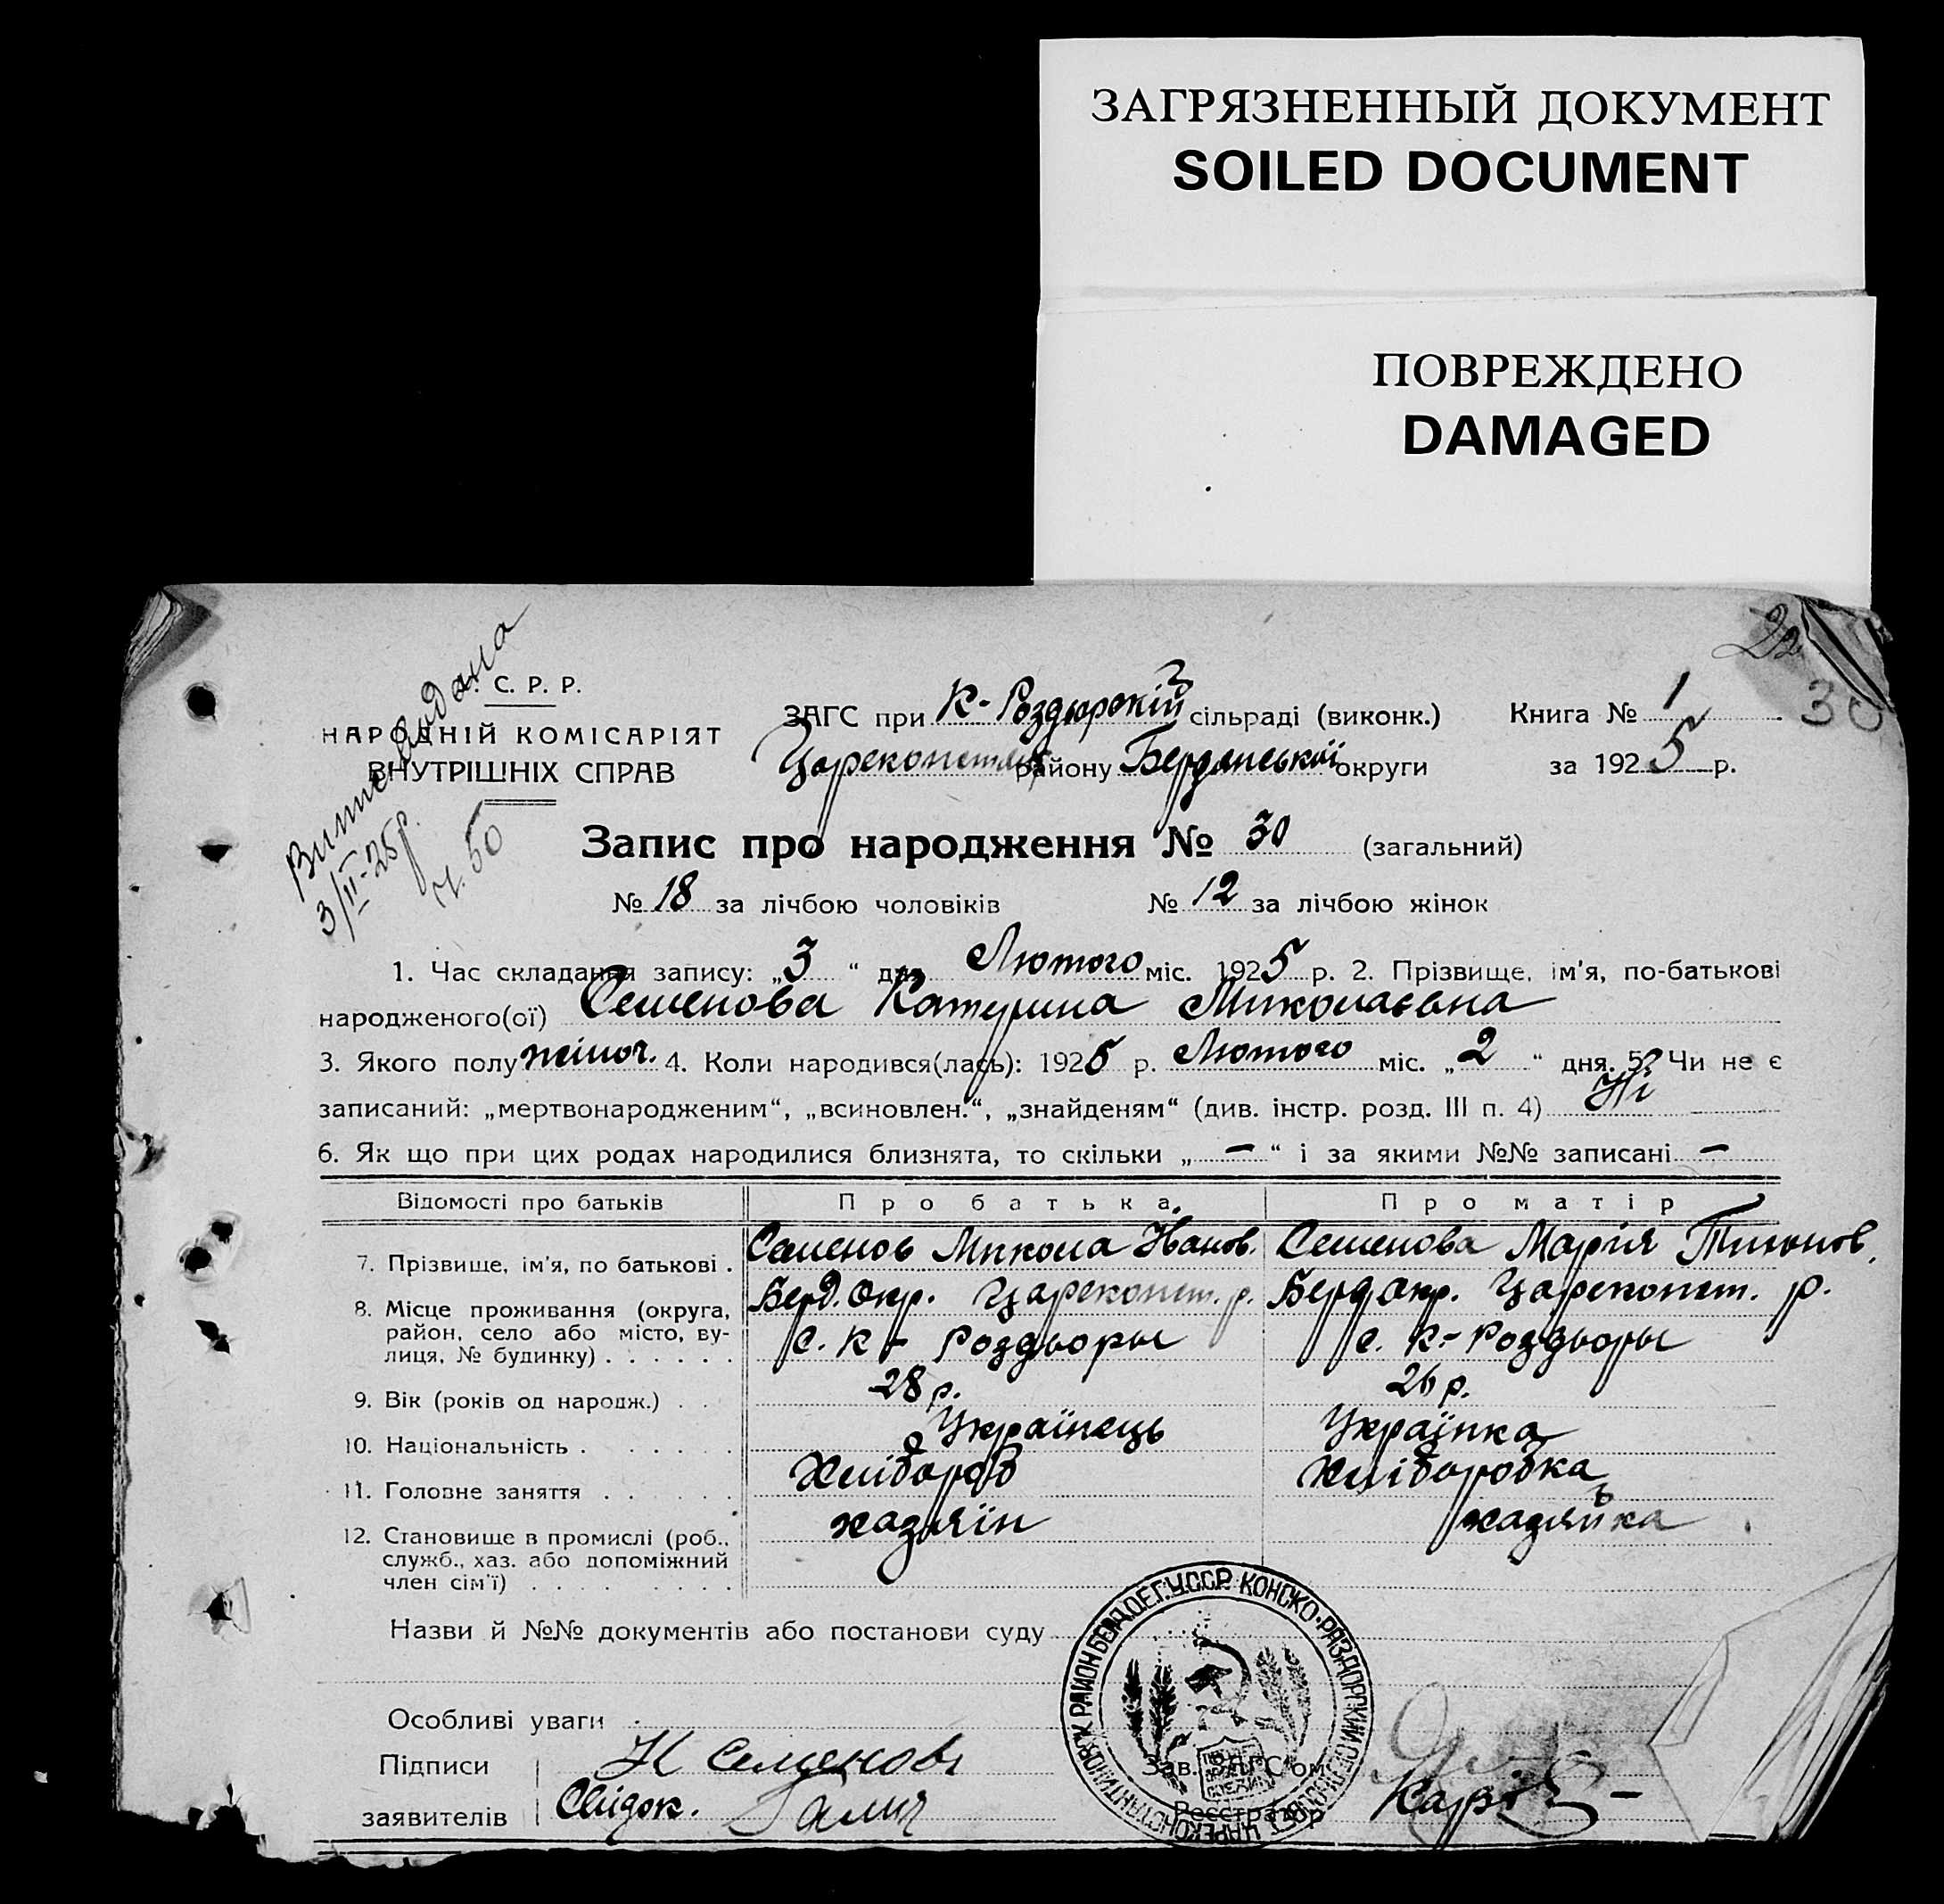 ЗАГРЯЗНЕННЫЙ ДОКУМЕНТ
SOILED DOCUMENT
ПОВРЕЖДЕНО
DAMAGED
22
30
Виписъ видана
3/II-25р.
ч. 50
С. Р. Р.
НАРОДНІЙ КОМІСАРІЯТ
ВНУТРІШНІХ СПРАВ
ЗАГС при К-Роздорскій сільраді (виконк.) Книга № 1
Цареконстян району Бердянської округи за 1925 р.
Запис про народження № 30 (загальний)
№ 18 за лічбою чоловіків № 12 за лічбою жінок
1. Час складання запису: „3“ дня Лютого міс. 1925 р. 2. Прізвище, ім'я, по-батькові
народженого(ої) Семенова Катерина Миколаєвна
3. Якого полу жіноч. 4. Коли народився(лась): 1925 р. Лютого міс. „2“ дня. 5. Чи не є
записаний: „мертвонародженим“, „всиновлен.“, „знайденям“ (див. інстр. розд. III п. 4) Ні
6. Як що при цих родах народилися близнята, то скільки „ — “ і за якими №№ записані —
Відомості про батьків Про батька Про матір
7. Прізвище, ім'я, по батькові . Семенов Микола Іванов. Семенова Марія Тихонов.
8. Місце проживання (округа, Берд. окр. Цареконст. р. Берд окр. Цареконст. р.
район, село або місто, ву-
лиця, № будинку) . . . . . . с. К - Роздьоры с. К - Роздьоры
9. Вік (років од народж.) . . 28 р. 26 р.
10. Національність . . . . . . Українець Українка
11. Головне заняття . . . . . Хлібороб Хліборобка
12. Становище в промислі (роб., хазяїн хазяйка
служб., хаз. або допоміжний
член сім'ї) . . . . . . . . .
Назви й №№ документів або постанови суду
Особливі уваги
Підписи Н Семенов
заявителів Свідок. Галич
Зав. ЗАГС'ом
Реєстратор
КОНСКО-РАЗДОРСКИЙ СЕЛ. СОВЕТ ЦАРЕКОНСТАНТИНОВСК РАЙОН БЕРД. ДЕГ. У.С.С.Р.